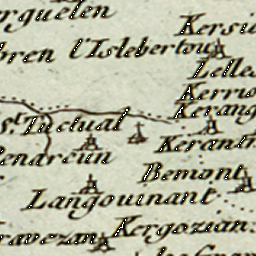 erguelen
Kersu
bren l'Islebertou
Lelles
Kerrio
Kerang
St. Tuctual
Kerantr
Penarcun
Bemont
Langouinant
Kergozian.
ravezan